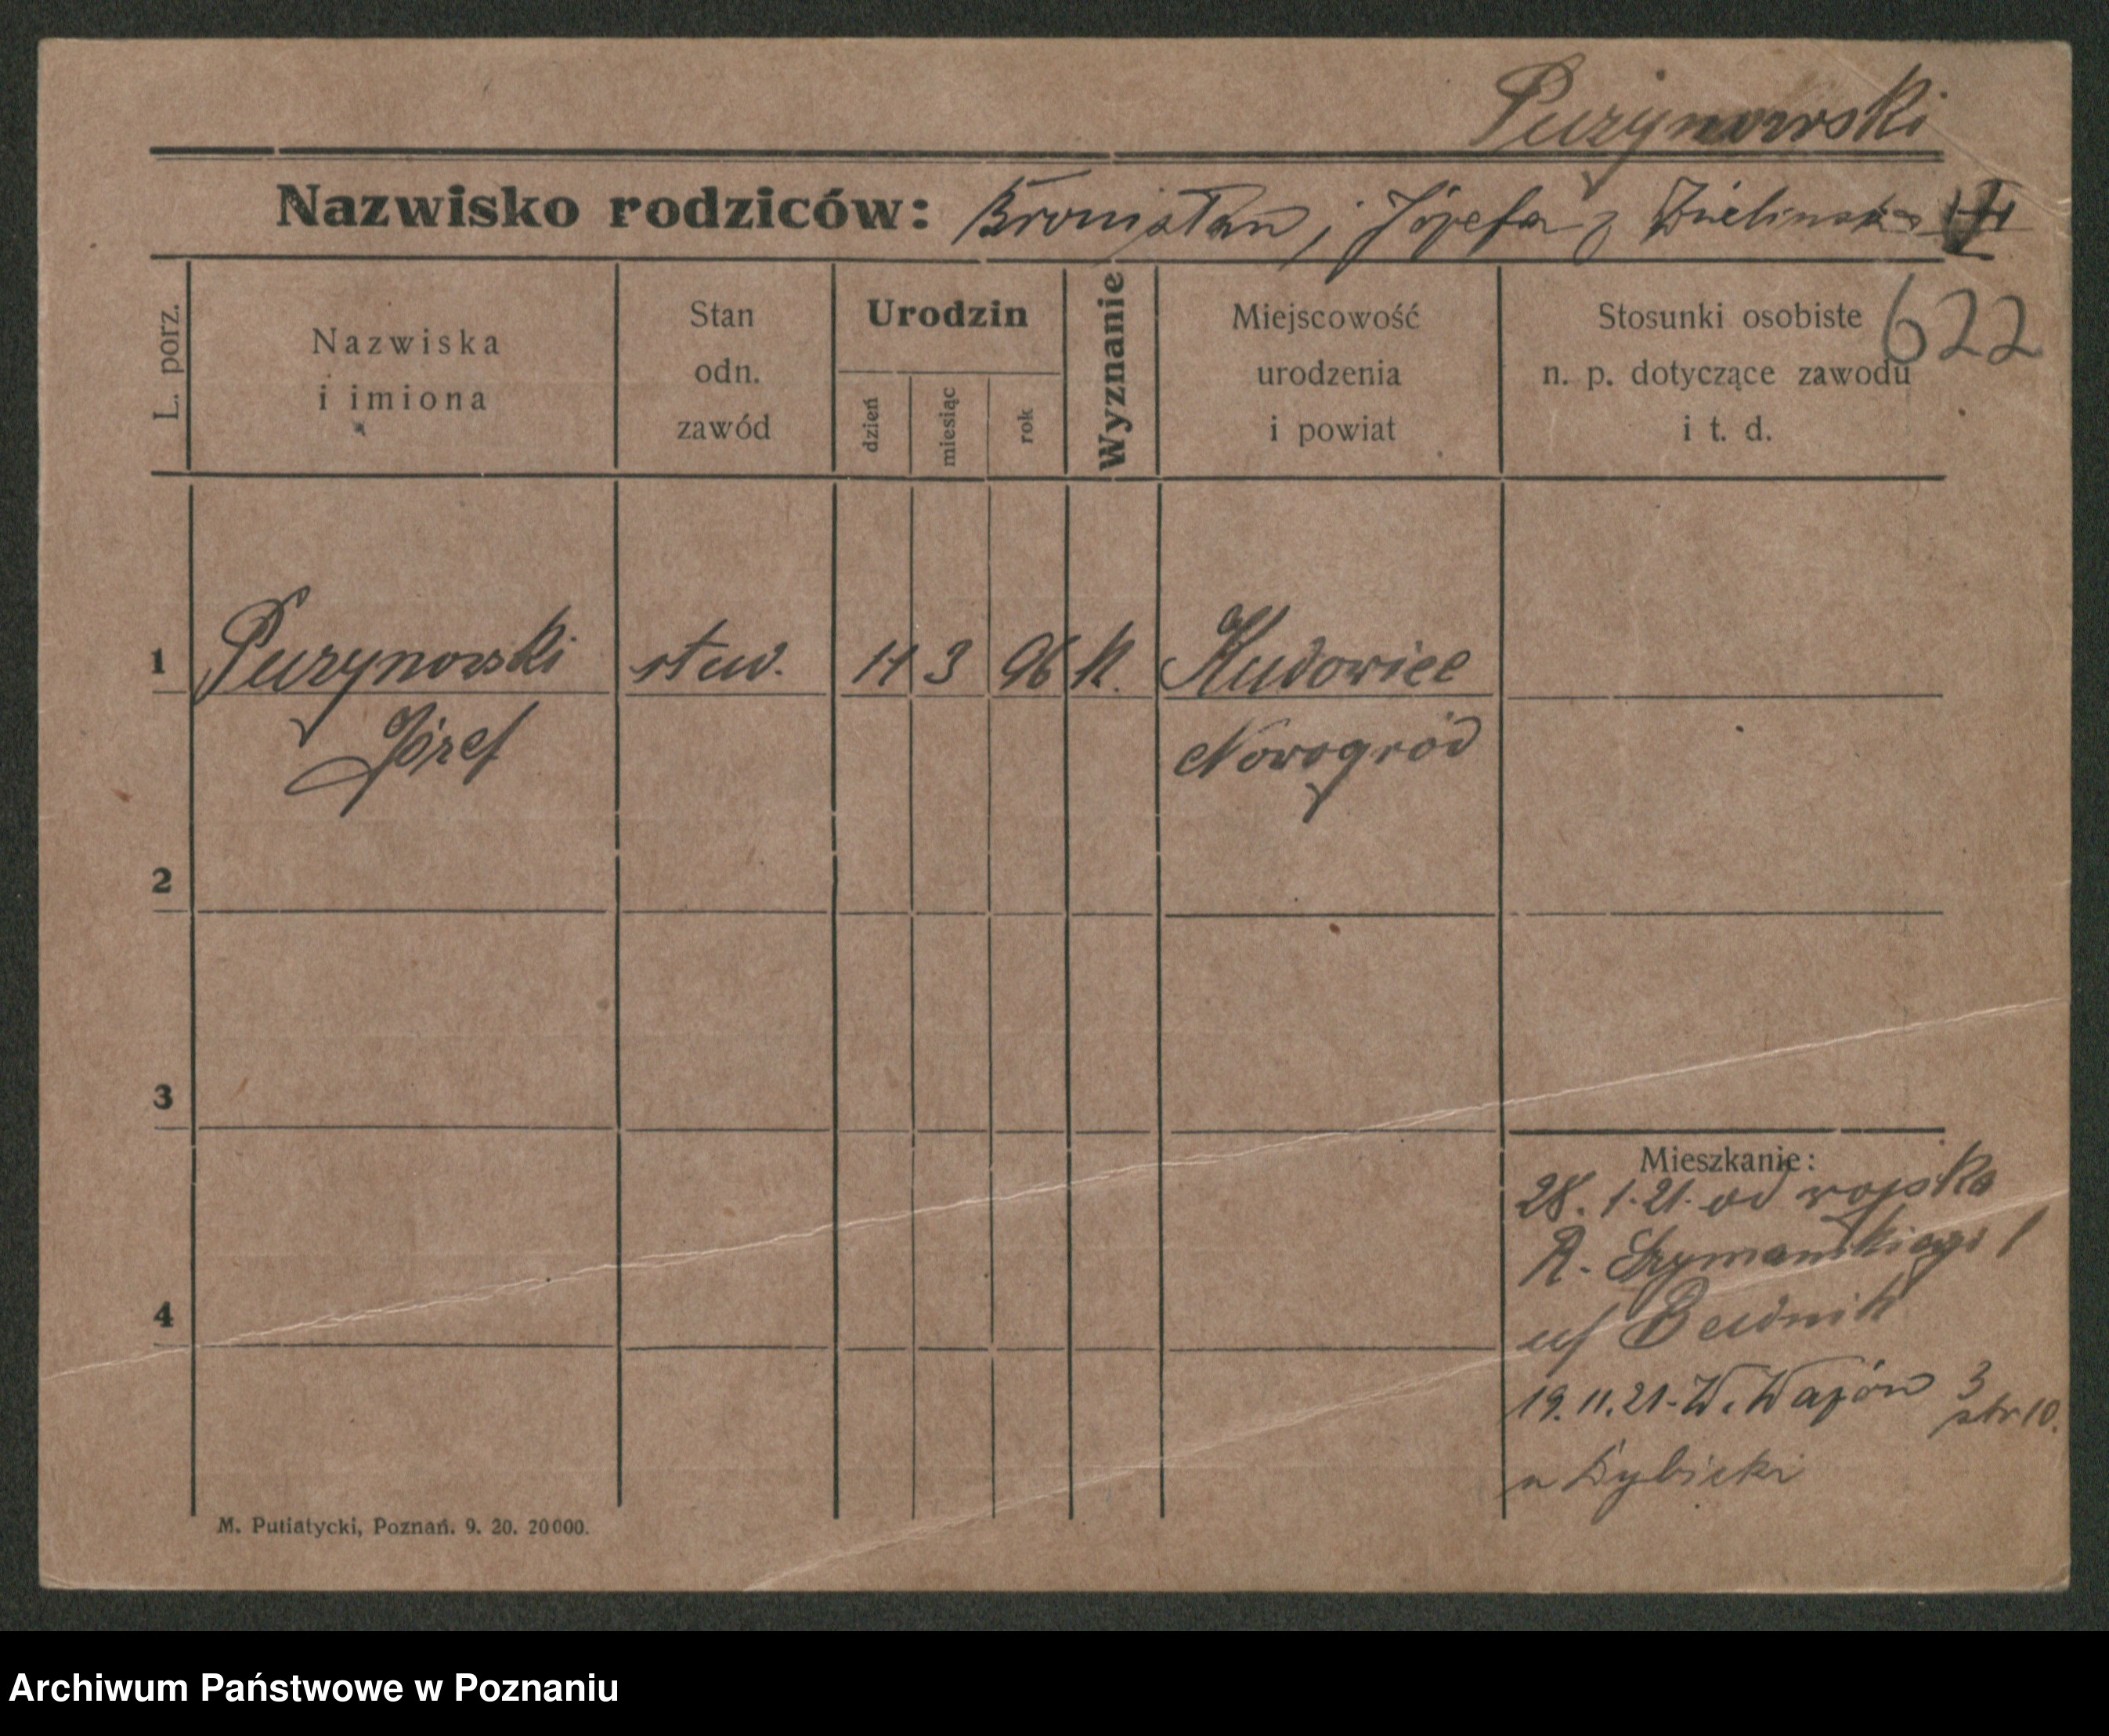 Purzynowski
Nazwisko rodziców: Bronisław i Józefa z Zielinska
622
L. porz.
Nazwiska
i imiona
Stan
odn.
zawód
Urodzin
dzień
miesiąc
rok
Wyznanie
Miejscowość
urodzenia
i powiat
Stosunki osobiste
n. p. dotyczące zawodu
i t. d.
1 Purzynowski 3 96 k.
Józef Nowogród
2
3
4
Mieszkanie:
28. 1. 21. od wojska
R. Szymańskiego 1
19. 11. 21. W. 3
str 10.
Rybicki
M. Putiatycki, Poznań. 9. 20. 20000.
Archiwum Państwowe w Poznaniu